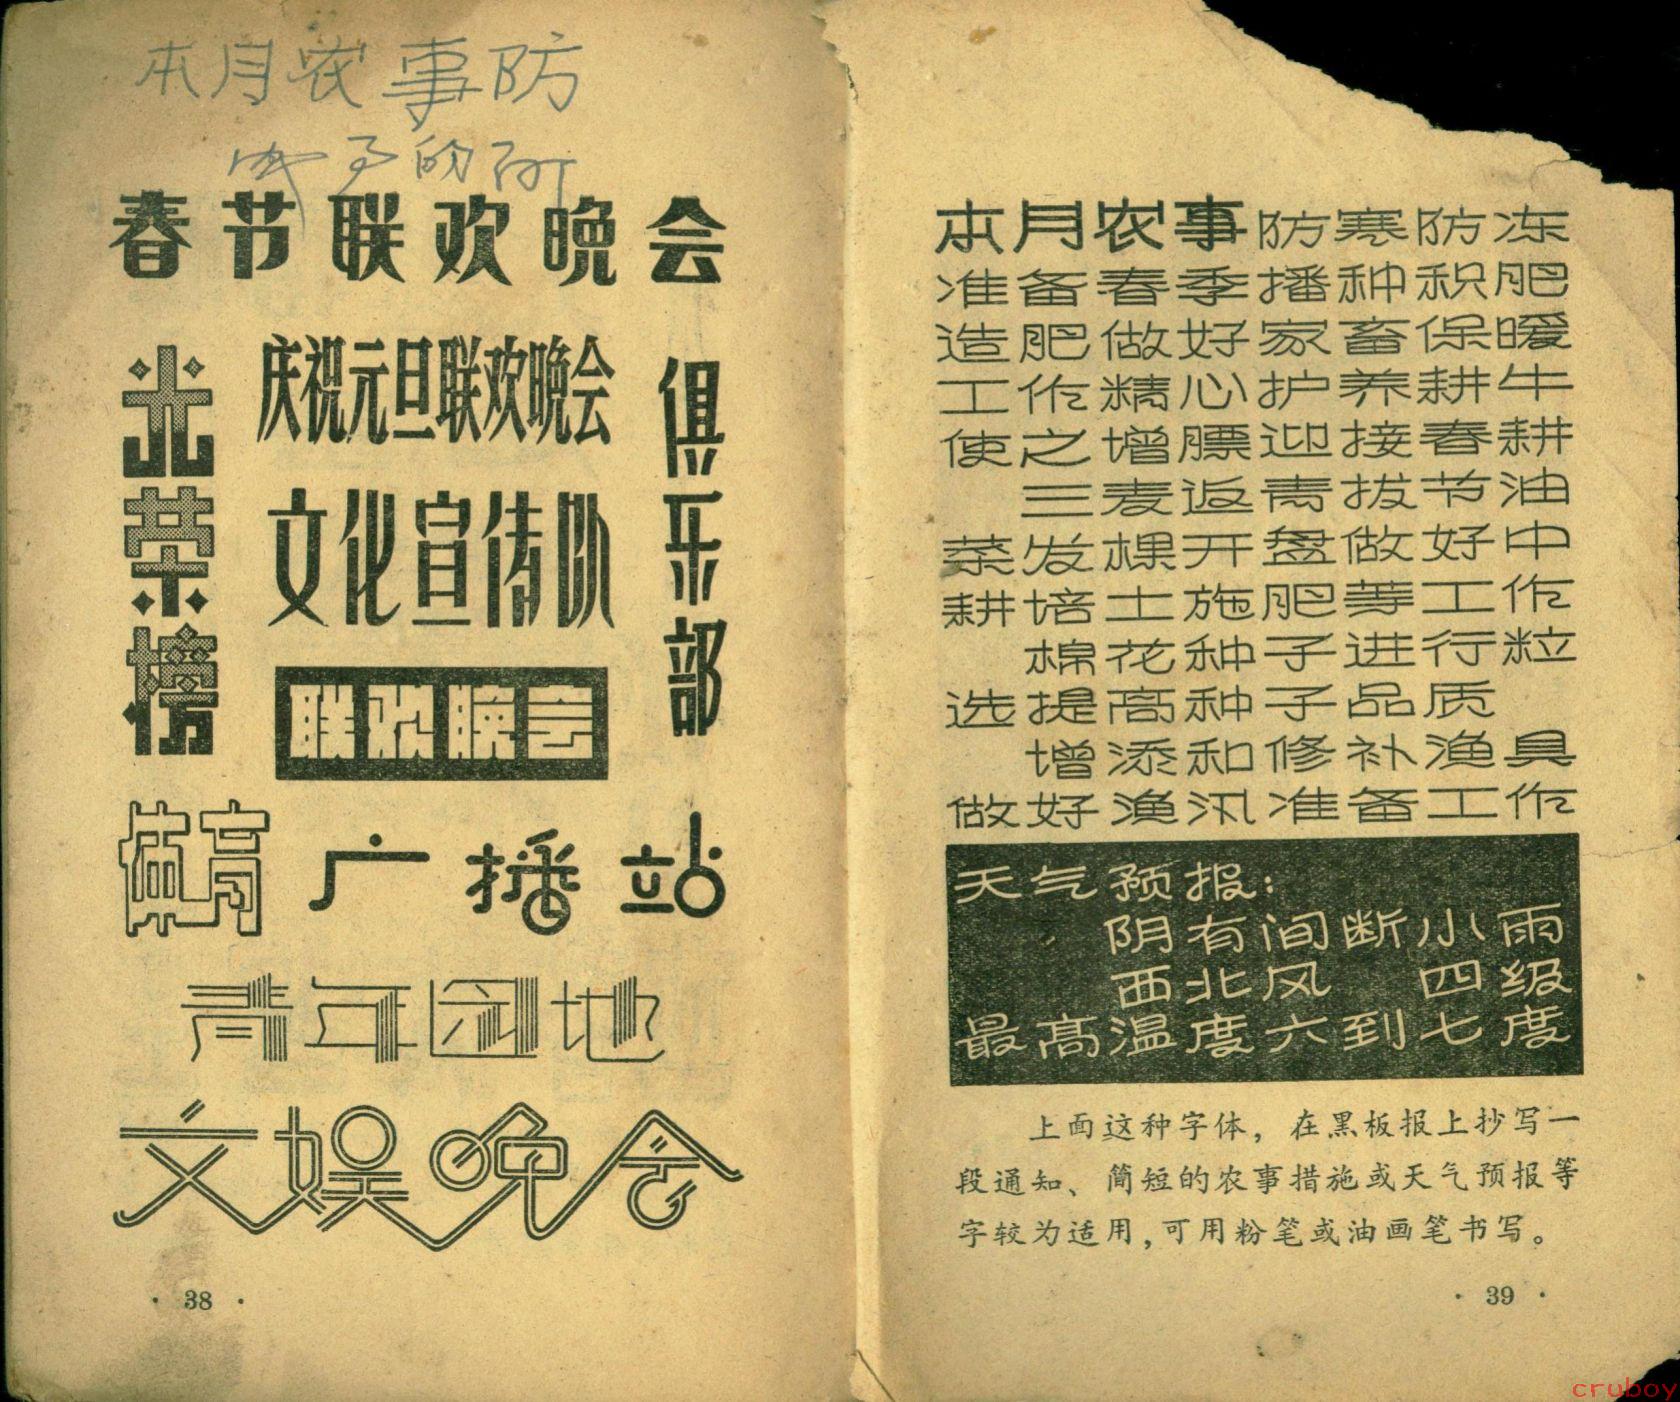 本月农事防
的
春节联欢晚会
光荣榜
庆祝元旦联欢晚会
文化宣传队
联欢晚会
俱乐部
搞高
广播站
青年园地
文娱晚会
· 38 ·
本月农事防寒防冻
准备春季播种积肥
造肥做好家畜保暖
工作精心护养耕牛
使之增膘迎接春耕
三麦返青拔节油
菜发棵开盘做好中
耕培土施肥等工作
棉花种子进行粒
选提高种子品质
增添和修补渔具
做好渔汛准备工作
天气预报:
阴有间断小雨
西北风 四级
最高温度六到七度
上面这种字体，在黑板报上抄写一
段通知、简短的农事措施或天气预报等
字较为适用，可用粉笔或油画笔书写。
· 39 ·
cruboy